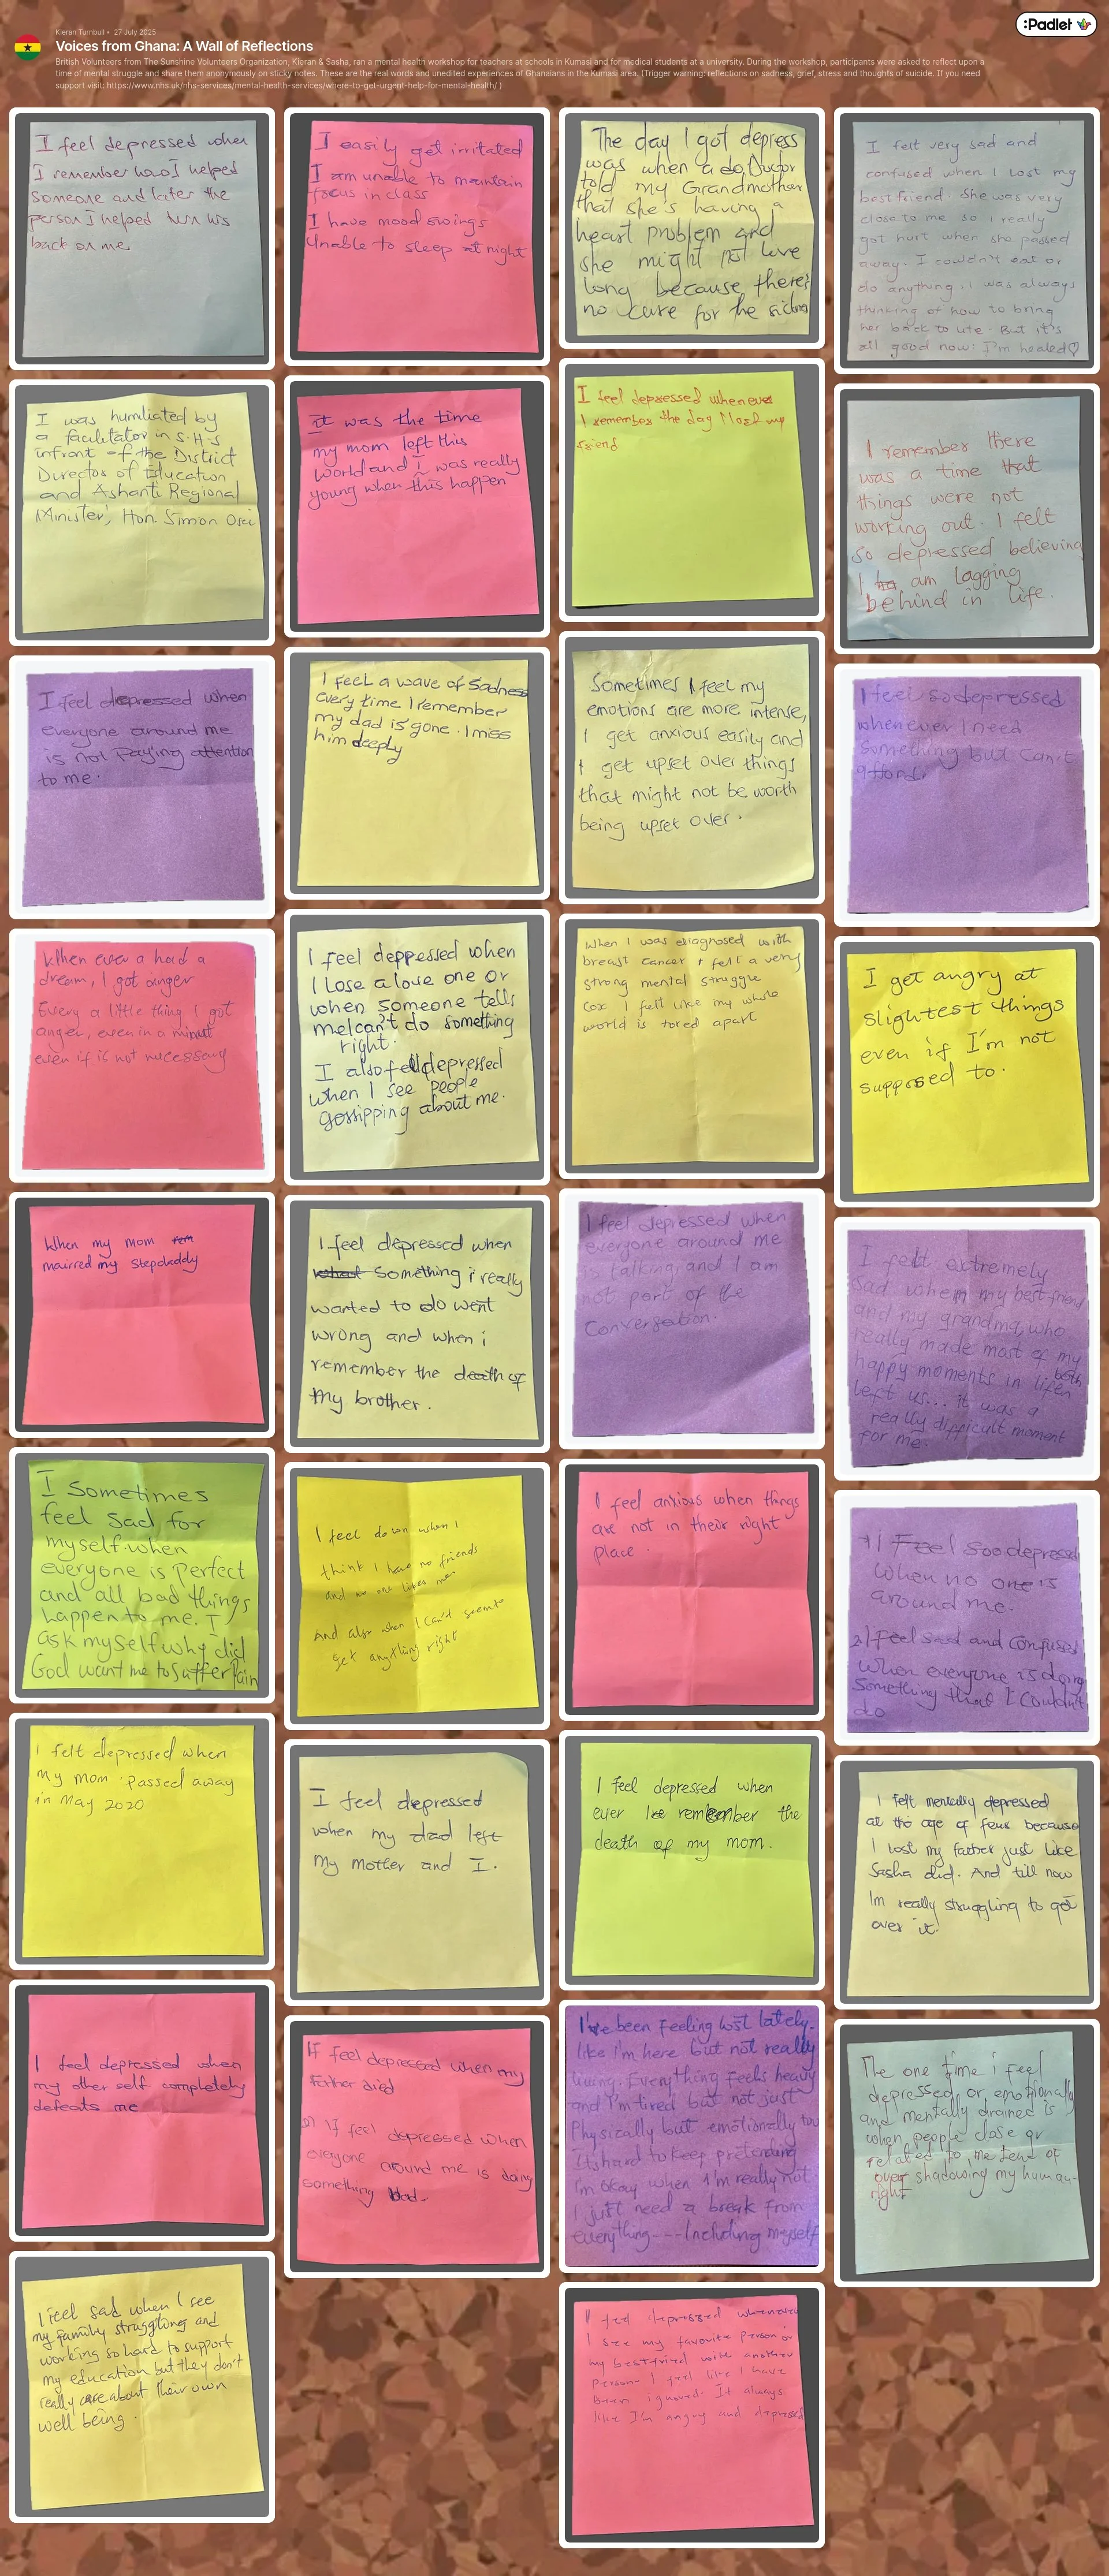 :Padlet
Kieran Turnbull • 27 July 2025
Voices from Ghana: A Wall of Reflections
British Volunteers from The Sunshine Volunteers Organization, Kieran & Sasha, ran a mental health workshop for teachers at schools in Kumasi and for medical students at a university. During the workshop, participants were asked to reflect upon a
time of mental struggle and share them anonymously on sticky notes. These are the real words and unedited experiences of Ghanaians in the Kumasi area. (Trigger warning: reflections on sadness, grief, stress and thoughts of suicide. If you need
support visit: https://www.nhs.uk/nhs-services/mental-health-services/where-to-get-urgent-help-for-mental-health/ )
I feel depressed when
I remember how I helped
someone and later the
person I helped turn his
back on me
I was humiliated by
a facilitator in S.H.S
infront of the District
Director of Education
and Ashanti Regional
Minister, Hon. Simon Osei
I feel depressed when
everyone around me
is not Paying attention
to me.
When ever a had a
dream, I got anger
Every a little thing I got
anger, even in a minut
even if is not necessary
When my mom
mairred my Stepdaddy
I Sometimes
feel sad for
myself when
everyone is Perfect
and all bad things
happen to me. I
ask myself why did
God want me to suffer Pain
I felt depressed when
my mom passed away
in May 2020
I feel depressed when
my other self completely
defeats me
I feel sad when I see
my family struggling and
working so hard to support
my education but they don't
really care about their own
well being.
I easily get irritated
I am unable to maintain
focus in class
I have mood swings
Unable to sleep at night
it was the time
my mom left this
world and i was really
young when this happen
I feel a wave of Sadness
every time I remember
my dad is gone. I miss
him deeply
I feel deppressed when
I Lose a love one or
when someone tells
me I can't do something
right.
I also fell depressed
when I see people
gossipping about me.
I feel depressed when
something i really
wanted to do went
wrong and when i
remember the death of
my brother.
I feel down when I
think I have no friends
and no one likes me
And also when I can't seem to
get anything right
I feel depressed
when my dad left
my mother and I.
If feel depressed when my
father died
2) If feel depressed when
everyone around me is doing
something bad.
The day I got depress
was when a Doctor
told my Grandmother
that she's having a
heart problem and
she might not love
long because there's
no cure for the sickne
I feel depressed whenever
I remember the day I lost my
friend
Sometimes I feel my
emotions are more intense,
I get anxious easily and
I get upset over things
that might not be worth
being upset over.
When I was diagnosed with
breast cancer I felt a very
strong mental struggle
cox I felt like my whole
world is tored apart
I feel depressed when
everyone around me
is talking and I am
not part of the
Conversation.
I feel anxious when things
are not in their right
place.
I feel depressed when
ever remember the
death of my mom.
I've been feeling lost lately.
like i'm here but not really
living. Everything feels heavy
and I'm tired but not just
Physically but emotionally too
Its hard to keep pretending
i'm okay when I'm really not.
I just need a break from
everything---Including myself
I feel depressed whenever
I see my favourite person or
my bestfriend with another
person. I feel like I have
been ignored. It always
like I'm angry and depressed
I felt very sad and
confused when I lost my
best friend. She was very
close to me so i really
got hurt when she passed
away. I couldn't eat or
do anything. i was always
thinking of how to bring
her back to life. But it's
all good now: I'm healed♡
I remember there
was a time that
things were not
working out. I felt
so depressed believing
I am lagging
behind in life.
I feel so depressed
whenever I need
Something but Can't
afford.
I get angry at
slightest things
even if I'm not
supposed to.
I felt extremely
sad when my best friend
and my grandma, who
really made most of my
happy moments in life, both
left us... it was a
really difficult moment
for me.
1) I Feel soo depressed
when no one is
around me.
2) I Feel sad and Confused
when everyone is doing
something that I Couldn't
do
I felt mentally depressed
at the age of four because
I lost my father just like
Sasha did. And till now
Im really struggling to get
over it.
The one time i feel
depressed or emotionally
and mentally drained is
when people close or
related to me tend of
over shadowing my human-
right